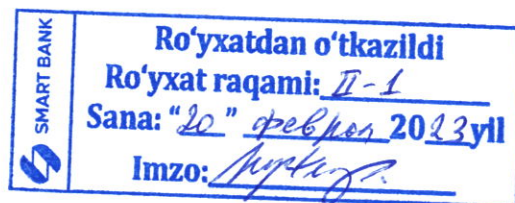 SMART BANK
Ro‘yxatdan o‘tkazildi
Ro‘yxat raqami: II-1
Sana: “20” феврал 2023 yil
Imzo: